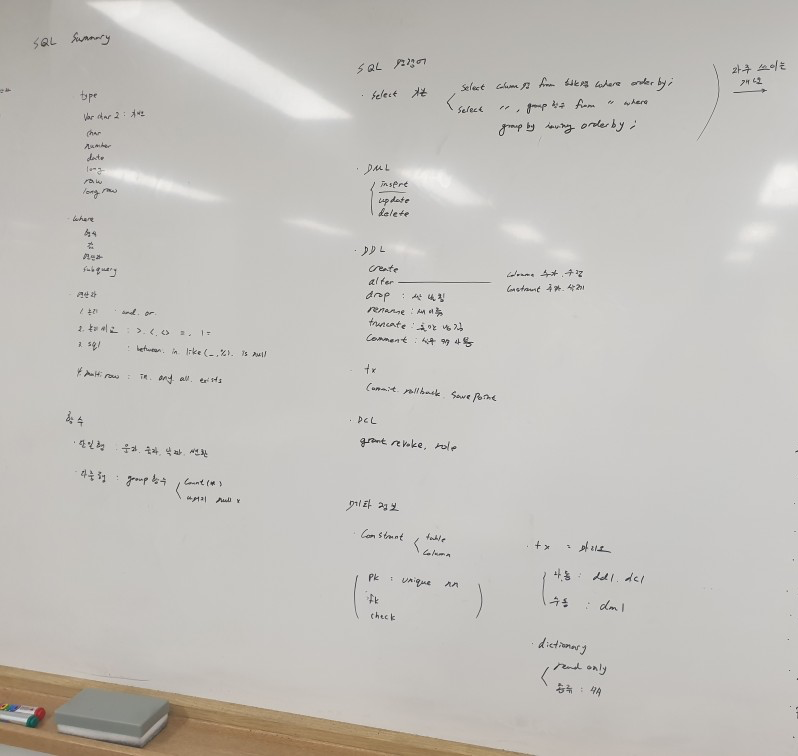 SQL Summary
type
Varchar2 :
char
number
date
long
raw
long row
where
형식
값
연산자
subquery
연산자
1. 논리 : and. or.
2. 논리비교 : >. <. <> =. !=
3. sql : between. in. like(_,%). is null
4. multi row : in. any. all. exists
함수
· 단일행 . 문자. 숫자. 날짜. 변환
· 다중행 : group 함수
count(*)
나머지 null x
SQL 명령어
· Select
Select column명 from 테이블명 where order by;
Select 〃, group 함수 from 〃 where
group by having order by;
자주 쓰이는
개념
· DML
insert
update
delete
· DDL
create
alter
column 추가. 수정
Constraint 추가. 삭제
drop :
rename : 새이름
truncate :
Comment :
· tx
Commit. rollback. Save point
· DCL
grant revoke. role
기타 정보
· Constraint
table
column
pk : unique nn
fk
check
· tx =
자동 : ddl. dcl
수동 : dml
· dictionary
read only
종류 :